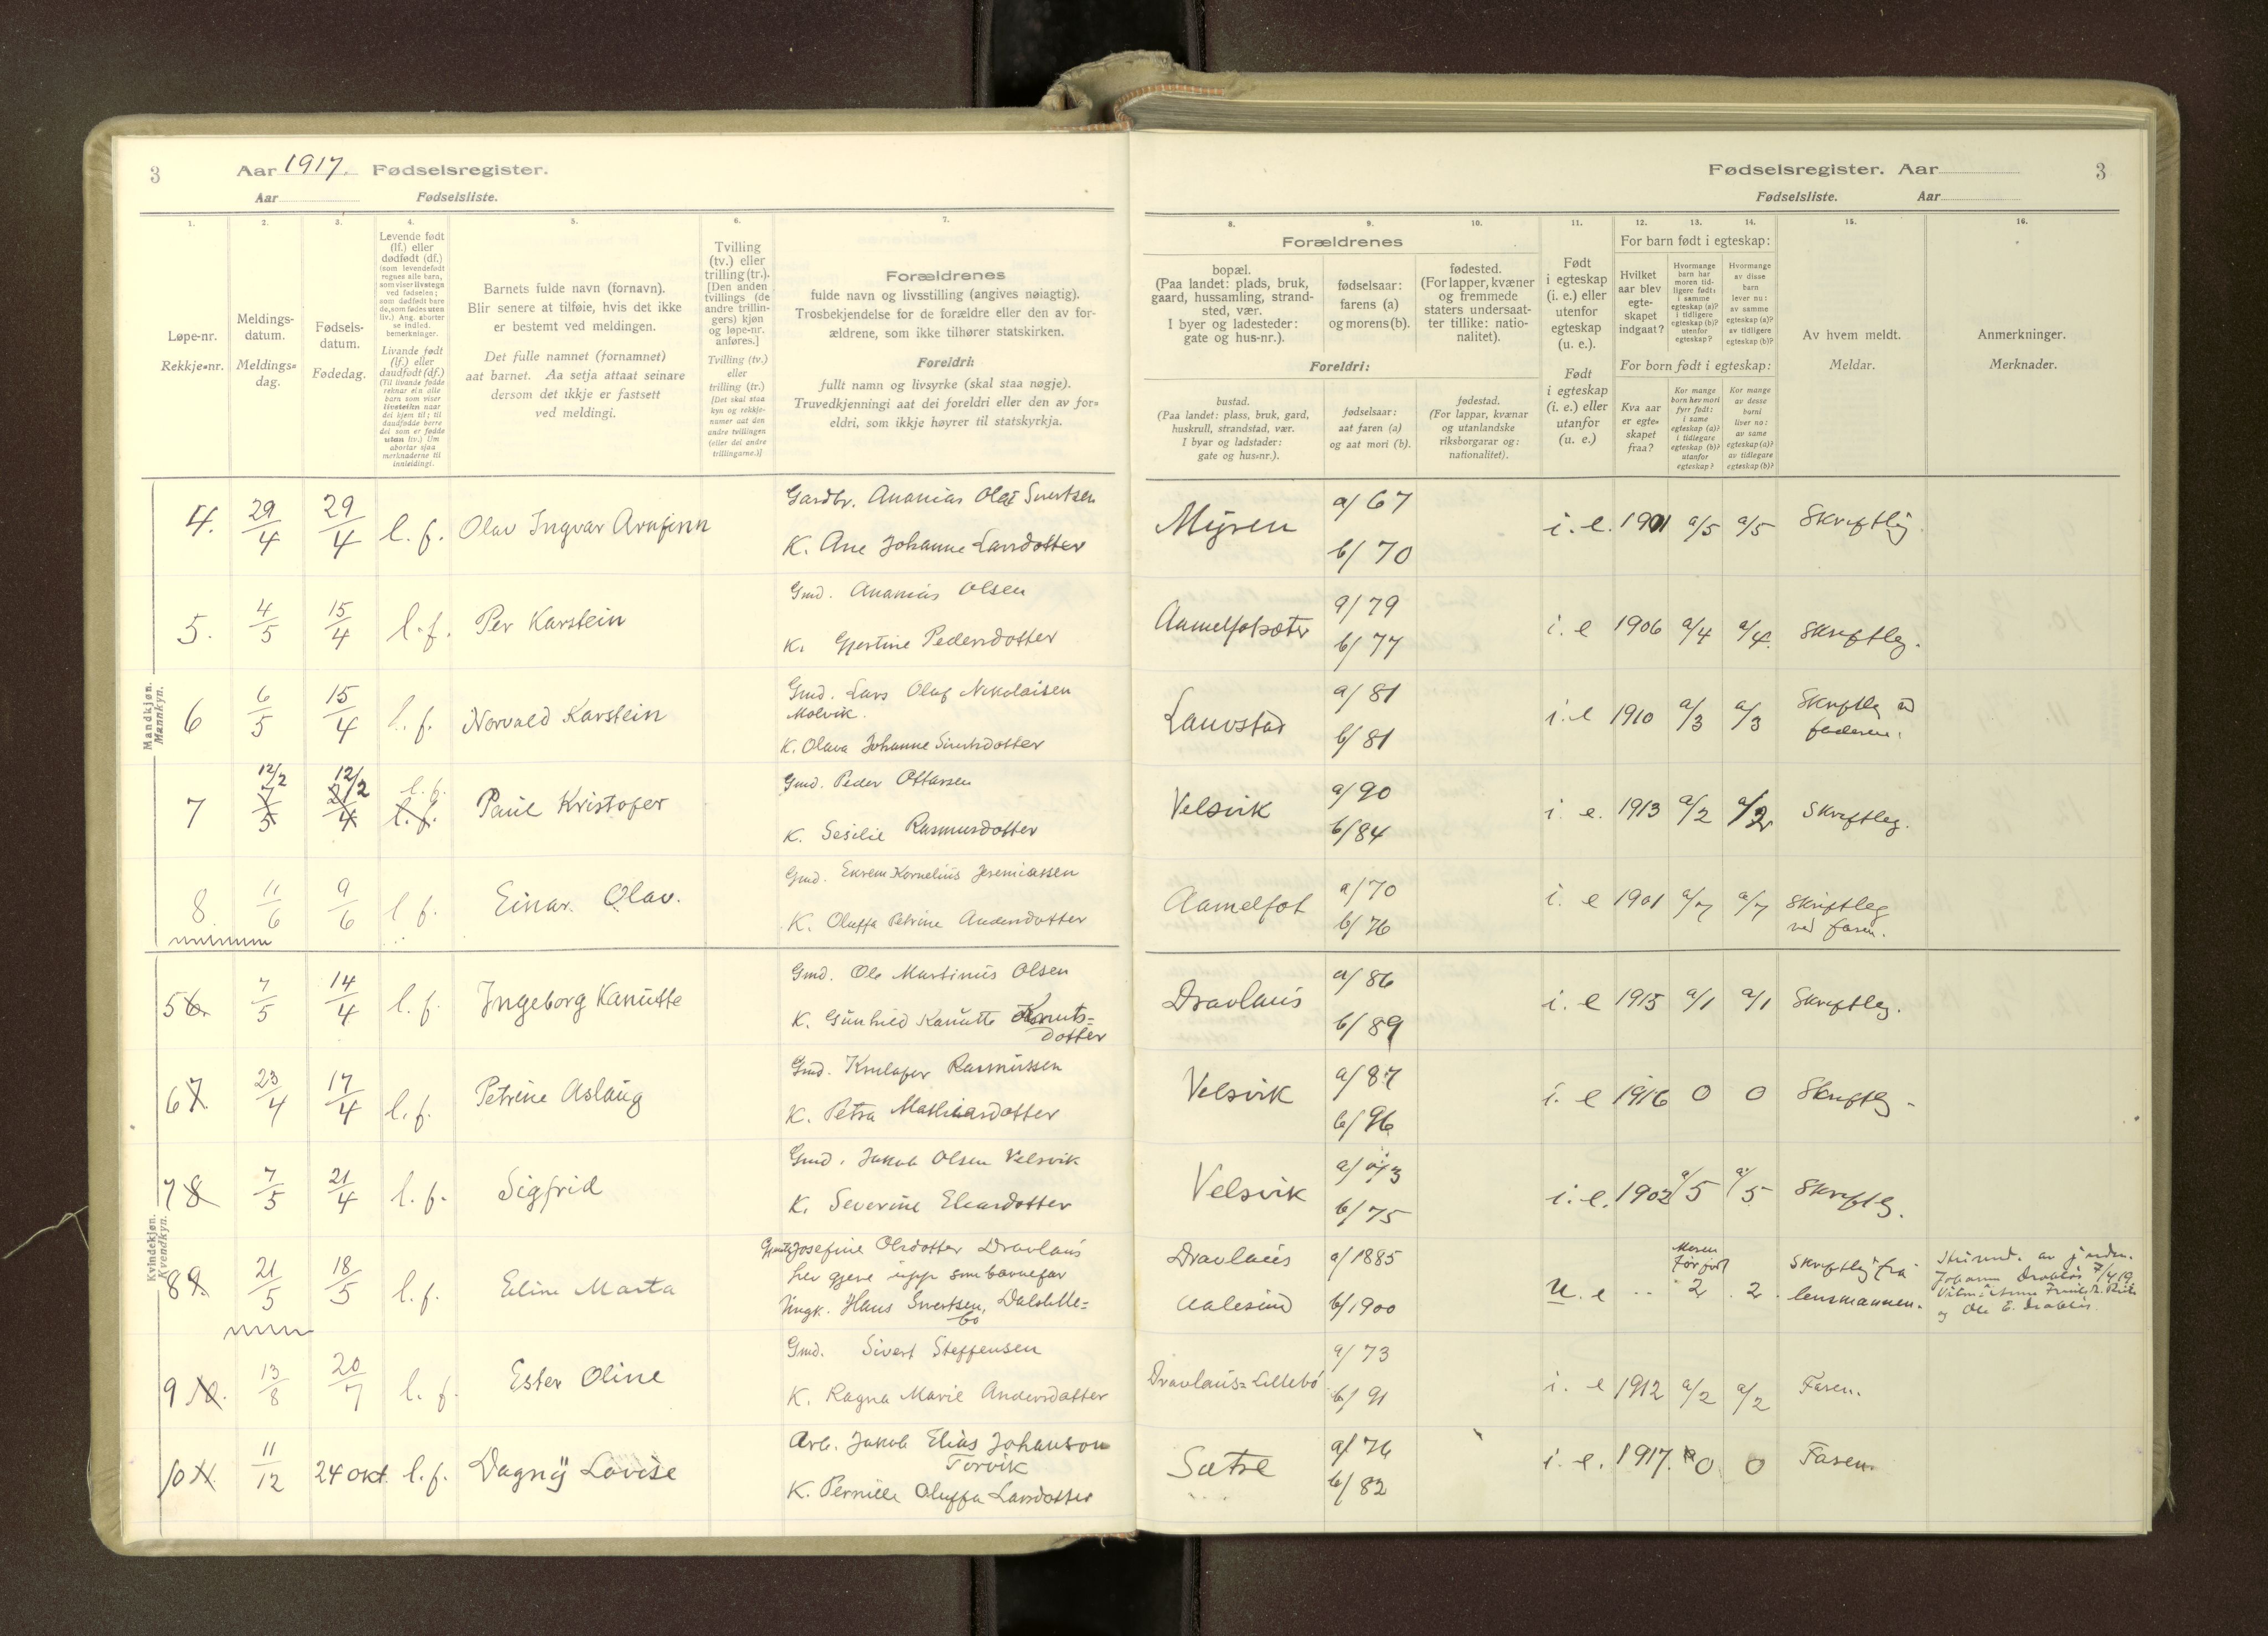 3 Aar 1917. Fødselsregister.
Aar Fødselsliste.
Fødselsregister. Aar 3
Fødselsliste. Aar
1. 2. 3. 4. 5. 6. 7. 8. 9. 10. 11. 12. 13. 14. 15. 16.
Løpe-nr.
Rekkje-nr.
Meldings-
datum.
Meldings-
dag.
Fødsels-
datum.
Fødedag.
Levende født
(lf.) eller
dødfødt (df.)
(som levendefødt
regnes alle barn,
som viser livstegn
ved fødselen;
som dødfødt bare
de, som fødes uten
liv.) Ang. aborter
se indled.
bemerkninger.
Livande født
(lf.) eller
daudfødt (df.)
(Til livande fødde
reknar ein alle
barn som viser
livsteikn naar
dei kjem til; til
daudfødde berre
dei som er fødde
utan liv.) Um
abortar sjaa
merknaderne til
innleidingi.
Barnets fulde navn (fornavn).
Blir senere at tilføie, hvis det ikke
er bestemt ved meldingen.
Det fulle namnet (fornamnet)
aat barnet. Aa setja attaat seinare
dersom det ikkje er fastsett
ved meldingi.
Tvilling
(tv.) eller
trilling (tr.).
[Den anden
tvillings (de
andre trillin-
gers) kjøn
og løpe-nr.
anføres.]
Tvilling (tv.)
eller
trilling (tr.)
[Det skal staa
kyn og rekkje-
numer aat den
andre tvillingen
(eller dei andre
trillingarne.)]
Forældrenes
fulde navn og livsstilling (angives nøiagtig).
Trosbekjendelse for de forældre eller den av for-
ældrene, som ikke tilhører statskirken.
Foreldri:
fullt namn og livsyrke (skal staa nøgje).
Truvedkjenningi aat dei foreldri eller den av for-
eldri, som ikkje høyrer til statskyrkja.
Forældrenes
bopæl.
(Paa landet: plads, bruk,
gaard, hussamling, strand-
sted, vær.
I byer og ladesteder:
gate og hus-nr.).
fødselsaar:
farens (a)
og morens (b).
fødested.
(For lapper, kvæner
og fremmede
staters undersaat-
ter tillike: natio-
nalitet).
Foreldri:
bustad.
(Paa landet: plass, bruk, gard,
huskrull, strandstad, vær.
I byar og ladstader:
gate og hus-nr.).
fødselsaar:
aat faren (a)
og aat mori (b).
fødestad.
(For lappar, kvænar
og utanlandske
riksborgarar og:
nationalitet).
Født
i egteskap
(i. e.) eller
utenfor
egteskap
(u. e.).
Født
i egteskap
(i. e.) eller
utanfor
(u. e.)
For barn født i egteskap:
Hvilket
aar blev
egte-
skapet
indgaat?
Hvormange
barn har
moren tid-
ligere født:
i samme
egteskap (a)?
i tidligere
egteskap (b)?
utenfor
egteskap?
Hvormange
av disse
barn
lever nu:
av samme
egteskap (a)?
av tidligere
egteskap (b)?
For born født i egteskap:
Kva aar
er egte-
skapet
fraa?
Kor mange
born hev mori
fyrr født:
i same
egteskap (a)?
i tidlegare
egteskap (b)?
utanfor
egteskap?
Kor mange
av desse
borni
liver no:
av same
egteskap (a)?
av tidlegare
egteskap (b)?
Av hvem meldt.
Meldar.
Anmerkninger.
Merknader.
Mandkjøn.
Mannkyn.
4. 29/4 29/4 l. f. Olav Ingvar Arnfinn
Gardbr. Ananias Olai Sivertsen
K. Ane Johanne Larsdotter
Myren a/ 67 b/ 70 i. e. 1901 a/5 a/5 Skriftlig.
5. 4/5 15/4 l. f. Per Karstein
Gmd. Ananias Olsen
K. Gjertine Pedersdotter
Aamelfotsæter a/ 79 b/ 77 i. e 1906 a/4 a/4. Skriftleg.
6 6/5 15/4 l. f. Norvald Karstein
Gmd. Lars Olaf Nikolaisen
Molvik.
K. Olava Johanne Sivertsdotter
Lauvstad a/ 81 b/ 81 i. e 1910 a/3 a/3 Skriftleg
faderen.
7 12/2 12/2 l. f. Paul Kristofer
Gmd. Peder Ottarsen
K. Sesilie Rasmusdotter
Velsvik a/90 b/84 i. e. 1913 a/2 a/2 Skriftleg.
8. 11/6 9/6 l f. Einar Olav.
Gmd. Ekrem Kornelius Jeremiassen
K. Oluffa Petrine Andersdotter
Aamelfot a/70 b/76 i. e 1901 a/7 a/7 Skriftleg
ved faren.
Kvindekjøn.
Kvendkyn.
5 6. 7/5 14/4 l. f. Ingeborg Kanutte
Gmd. Ole Martinus Olsen
K. Gunhild Kanutte Knuts-
dotter
Dravlaus a/ 86 b/ 89 i. e 1915 a/1 a/1 Skriftleg.
6 7. 23/4 17/4 l. f. Petrine Aslaug
Gmd. Kristofer Rasmussen
K. Petra Mathiasdotter
Velsvik a/ 87 b/ 96 i. e 1916 0 0 Skriftleg.
7 8 7/5 21/4 l. f. Sigfrid
Gmd. Jakob Olsen Velsvik
K. Severine Eliasdotter
Velsvik a/ 73 b/ 75 i. e. 1902 a/5 a/5 Skriftleg.
8 9. 21/5 18/5 l. f. Eline Marta
Gjenta Josefine Olsdotter Dravlaus
hev gjeve upp som barnefar
Ungk. Hans Sivertsen, Dalslille-
bø
Dravlaus a/1885
Aalesund b/1900
u. e Moren
før født
2 2 Skriftleg frå
lensmannen.
9 10. 13/8 20/7 l. f. Ester Oline
Gmd. Sivert Steffensen
K. Ragna Marie Andersdotter
Dravlaus-Lillebø a/ 73 b/ 91 i. e 1912 a/2 a/2 Faren.
10 11. 11/12 24 okt. l. f. Dagny Lovise
Arb. Jakob Elias Johanson
Torvik
K. Pernille Oluffa Larsdotter
Sætre a/ 76 b/ 82 i. e. 1917. 0 0 Faren.